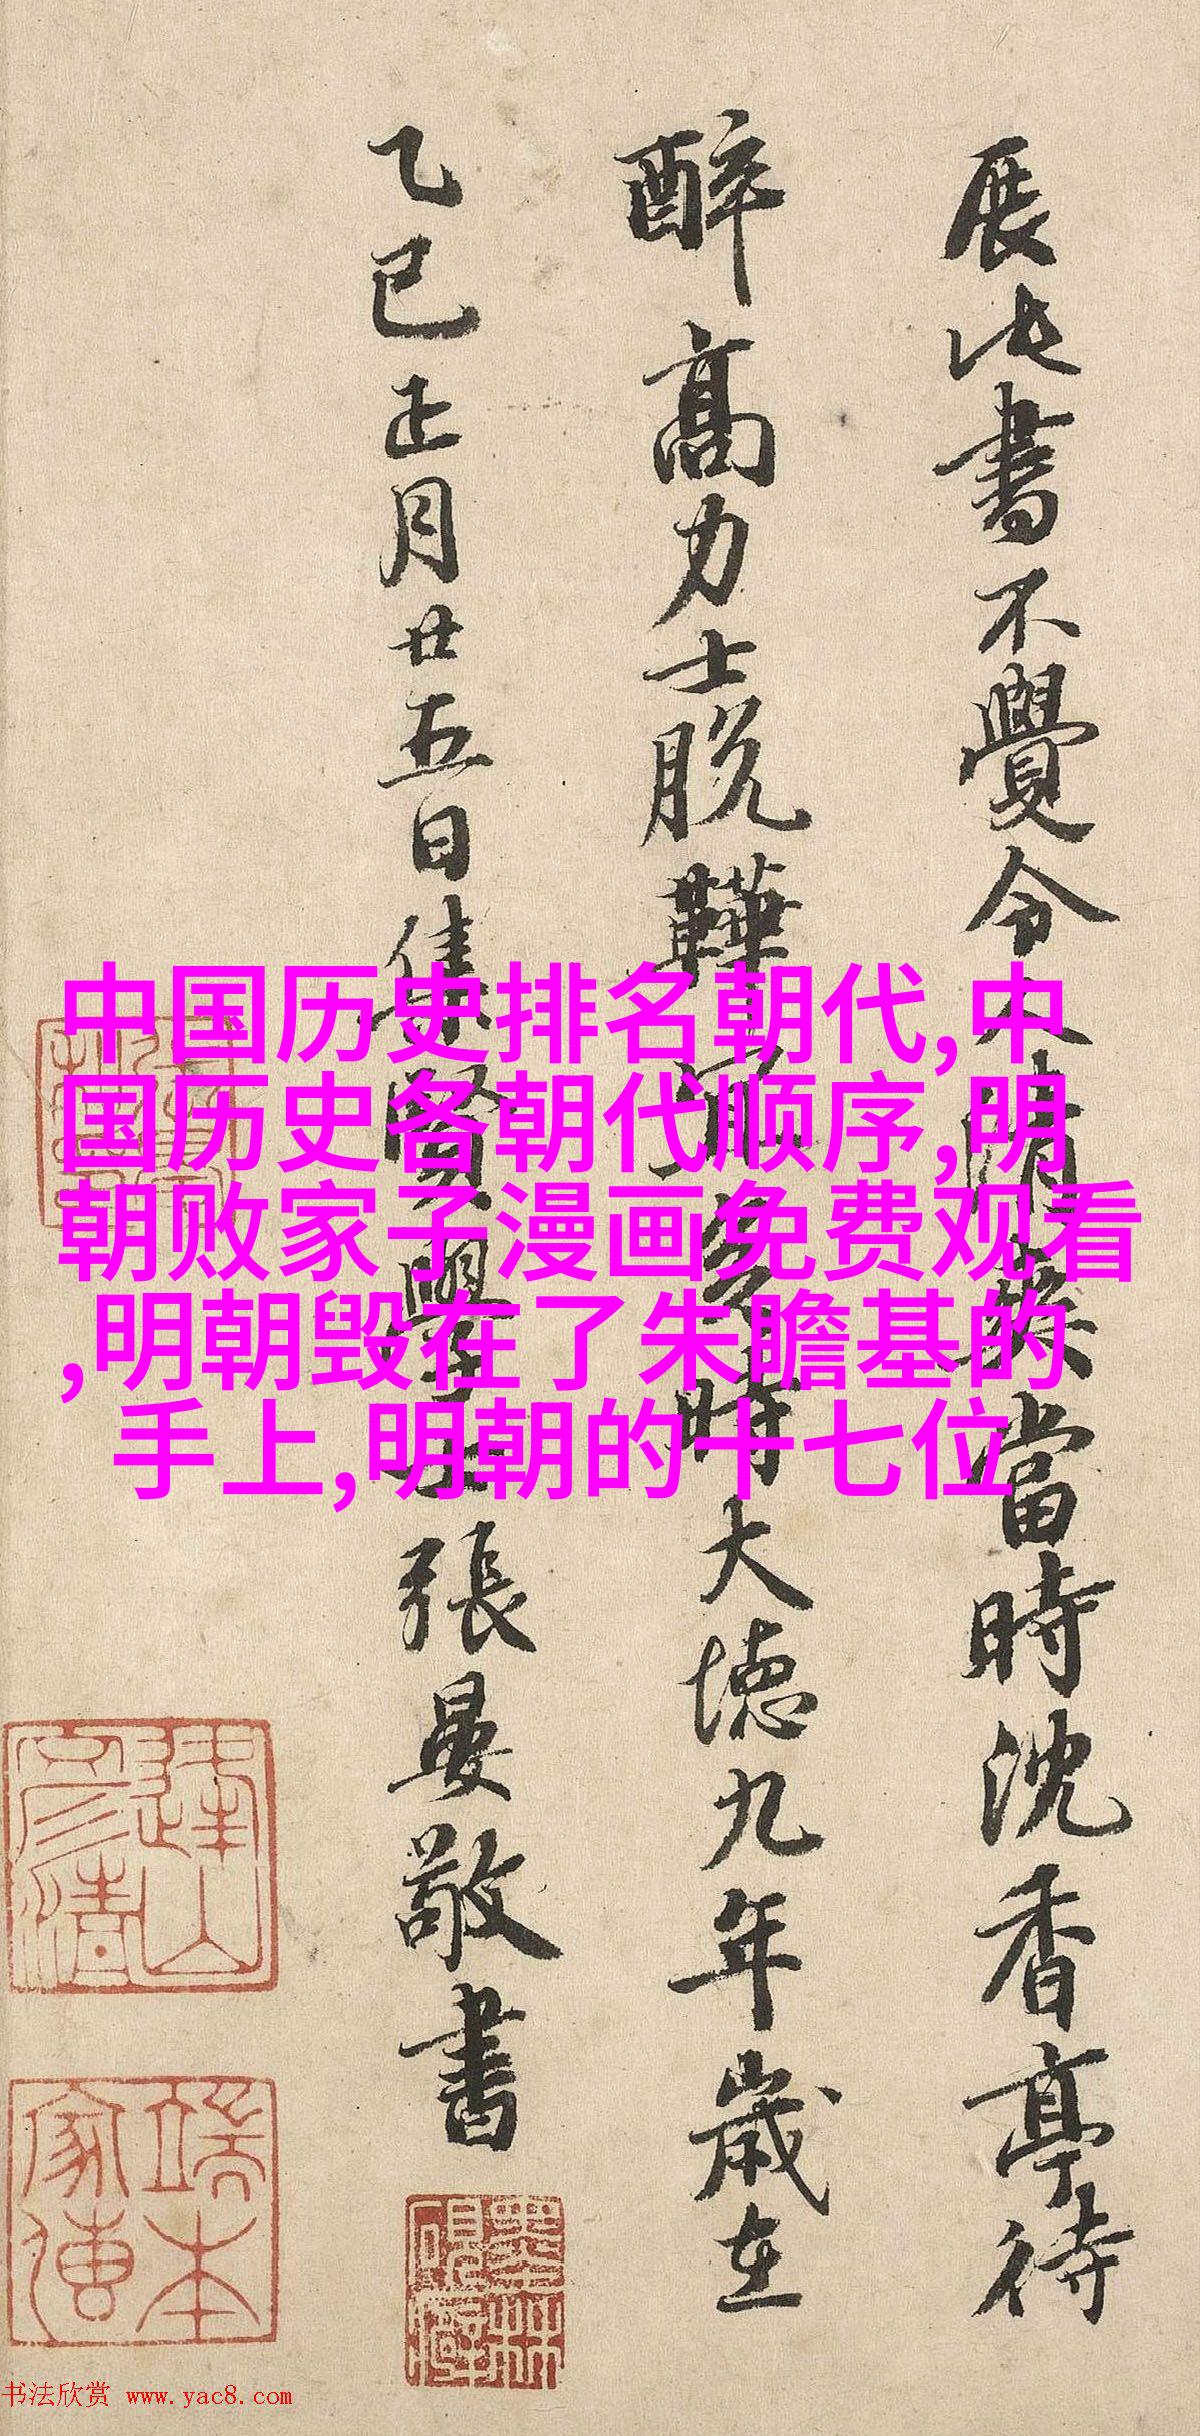 展此書不覺令人清爽當時沈香亭待
醉高力士脫鞾宜矣時大德九年歲在
乙巳正月廿五日集賢學士張晏敬書
中国历史排名朝代,中
国历史各朝代顺序,明
朝败家子漫画免费观看
,明朝毁在了朱瞻基的
手上,明朝的十七位
端本家傳
书法欣赏 www.yac8.com